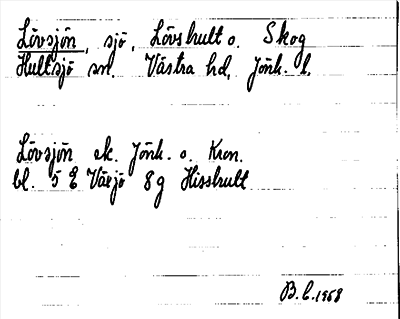 Lövsjön, sjö, Lövshult o. Skog
Hultsjö sn. Västra hd, Jönk. l.
Lövsjön ek. Jönk. o. Kron.
bl. 5 E Växjö 8g Hisshult
B.L. 1958